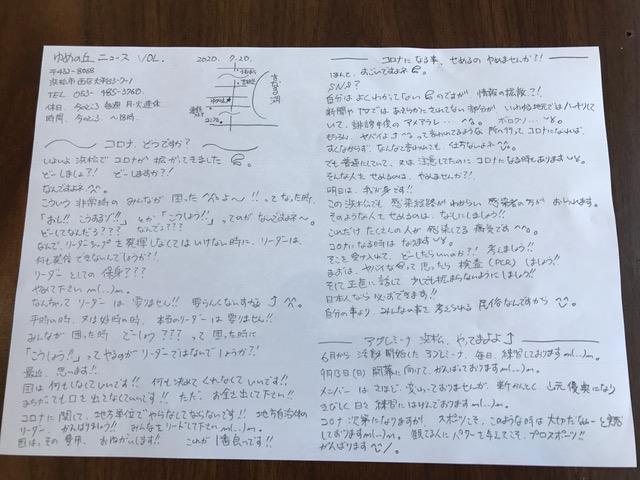 ゆめの丘 ニュース VOL.
2020. 7.20.
〒432-8068
浜松市西区大平台3-7-1
TEL 053-485-3760.
休日. 今のところ 毎週 月・火連休
時間. 今のところ 〜18時.
コロナ、どうですか?
いよいよ 浜松で コロナが 拡がってきました
どーしましょ?! どーしますか?!
なんですよネ
こういう 非常時の みんなが 困った 〜!! って なった時、
「おし!! こうするゾ!!」 とか 「こうしよう!」 ってのが なんですよネ〜。
どーしてなんだろ??? なんでよ???
なんで、リーダーシップを 発揮しなくては いけない時に、リーダーは、
何も発信できないんでしょうか?!
リーダー としての 保身???
やめて下さい m(...)m.
なんもない リーダーは 要りません!!
平時の時、又は好時の時、本当のリーダーは 要りません!!
みんなが 困った時 どーしよう??? って 困った時に
「こうしよう!」 ってやるのが リーダーではないでしょうか?!
最近、思います!!
国は何もしなくていいです!! 何も決めてくれなくていいです!!
まちがっても口を出さないでいいです!! ただ、お金は出して下さい!!
コロナに関して、地方単位で やらなくてならないです!! 地方自治体の
リーダー、がんばりましょう!! みんなをリードして下さい m(...)m.
国は、その 費用、おねがいします!! これが 1番良いです!!
コロナになる事、せめるの やめませんか?!
ほんと、すごいですよネ
SNS?
自分は よくわかってない のですが 情報の拡散?!
新聞や TVでは あきらかに されてない 部分が いわゆる地元ではハッキリして
いて、誹謗中傷の アメアラレ... ボロクソ...
もちろん、ヤバイよ って 言われてるような 所へ行って コロナになれば、
すくなからず、なんて言われても、仕方ないよネ
でも普通にしていて、又は 注意してたのに コロナになる時もあります
そんな人を せめるのは、やめませんか?!
明日は、我が身です!!
この浜松でも 感染経路が わからない 感染者の方が おられます。
そのような人を せめるのは、なしにしましょう!!
これだけ たくさんの人が 感染してる 病気です
コロナになる時は なります
そこを受け入れて、どーしたらいいのか?! 考えましょう!!
まずは、ヤバイな って思ったら 検査(PCR) しましょう!!
そして 正直に話して、少しでも拡まらないようにしましょう!!
日本人なら 必ずできます!!
自分の事より みんなの事を 考えられる 民俗なんですから
アグレミーナ 浜松、やってますよ↑
6月から 活動開始した アグレミーナ、毎日、練習しております m(...)m.
9月13日(日) 開幕に向けて、がんばっております m(...)m.
メンバーは さほど、変わっておりませんが、新かんとく
きびしく 日々 練習に はげんでおります m(...)m.
コロナ次第になりますが、スポーツこそ、このような時は 大切だなぁ〜と
しております m(...)m. 観てる人に パワーを与えてこそ、プロスポーツ!!
がんばります